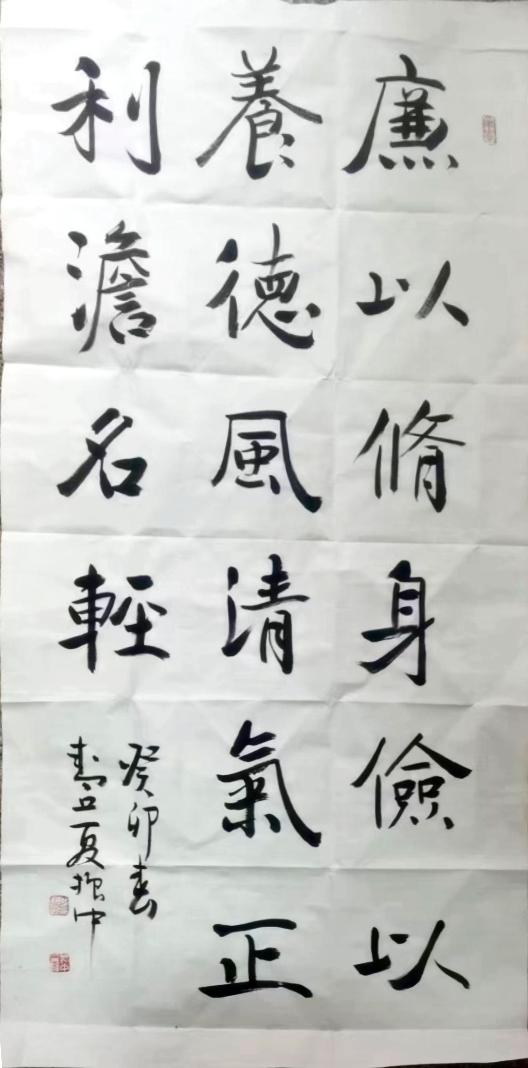 廉以脩身儉以
養德風清氣正
利澹名輕
癸卯春
夏振中